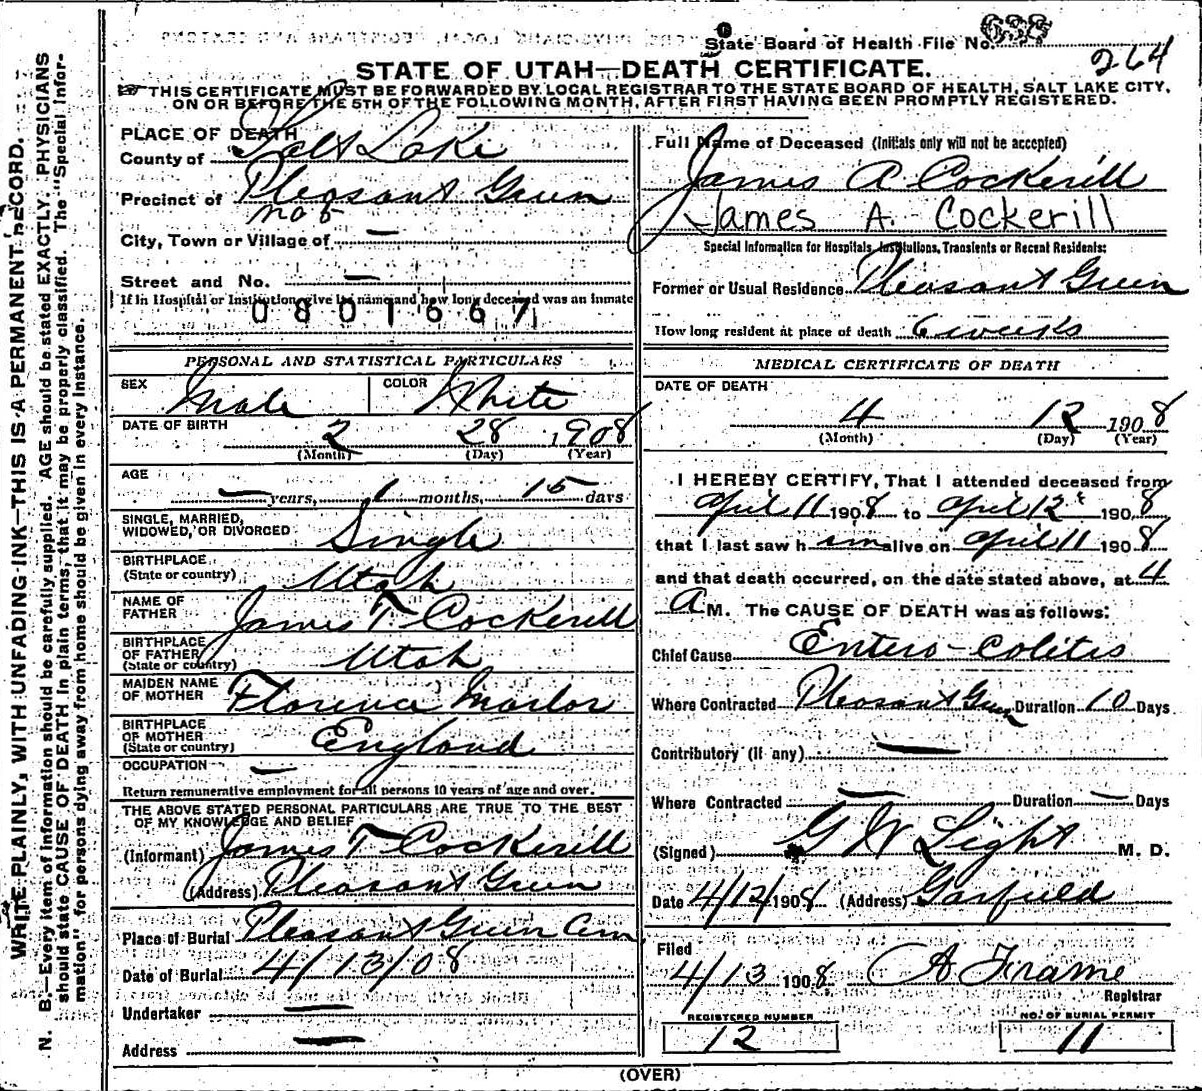 State Board of Health File No.
264
STATE OF UTAH—DEATH CERTIFICATE.
THIS CERTIFICATE MUST BE FORWARDED BY LOCAL REGISTRAR TO THE STATE BOARD OF HEALTH, SALT LAKE CITY,
ON OR BEFORE THE 5TH OF THE FOLLOWING MONTH, AFTER FIRST HAVING BEEN PROMPTLY REGISTERED.
WRITE PLAINLY, WITH UNFADING INK—THIS IS A PERMANENT RECORD.
N. B.—Every item of information should be carefully supplied. AGE should be stated EXACTLY. PHYSICIANS
should state CAUSE OF DEATH in plain terms, that it may be properly classified. The "Special Infor-
mation" for persons dying away from home should be given in every instance.
PLACE OF DEATH
County of Salt Lake
Precinct of Pleasant Green
No 5
City, Town or Village of —
Street and No. —
If in Hospital or Institution, give its name and how long deceased was an inmate
0801667
PERSONAL AND STATISTICAL PARTICULARS
SEX Male COLOR White
DATE OF BIRTH 2 28 1908
(Month) (Day) (Year)
AGE — years, 1 months, 15 days
SINGLE, MARRIED,
WIDOWED, OR DIVORCED Single
BIRTHPLACE
(State or country) Utah
NAME OF
FATHER James T Cockerill
BIRTHPLACE
OF FATHER
(State or country) Utah
MAIDEN NAME
OF MOTHER Florence Marlor
BIRTHPLACE
OF MOTHER
(State or country) England
OCCUPATION —
Return remunerative employment for all persons 10 years of age and over.
THE ABOVE STATED PERSONAL PARTICULARS ARE TRUE TO THE BEST
OF MY KNOWLEDGE AND BELIEF
(Informant) James T Cockerill
(Address) Pleasant Green
Place of Burial Pleasant Green Cem
Date of Burial 4/13/08
Undertaker —
Address —
Full Name of Deceased (Initials only will not be accepted)
James A Cockerill
James A. Cockerill
Special Information for Hospitals, Institutions, Transients or Recent Residents:
Former or Usual Residence Pleasant Green
How long resident at place of death 6 weeks
MEDICAL CERTIFICATE OF DEATH
DATE OF DEATH
4 12 1908
(Month) (Day) (Year)
I HEREBY CERTIFY, That I attended deceased from
April 11 1908 to April 12 1908
that I last saw him alive on April 11 1908
and that death occurred, on the date stated above, at 4
A M. The CAUSE OF DEATH was as follows:
Chief Cause Entero-Colitis
Where Contracted Pleasant Green Duration 10 Days
Contributory (if any) —
Where Contracted — Duration — Days
(Signed) G W Light M. D.
Date 4/12/1908 (Address) Garfield
Filed
4/13 1908 A Frame
Registrar
REGISTERED NUMBER
12
NO. OF BURIAL PERMIT
11
(OVER)